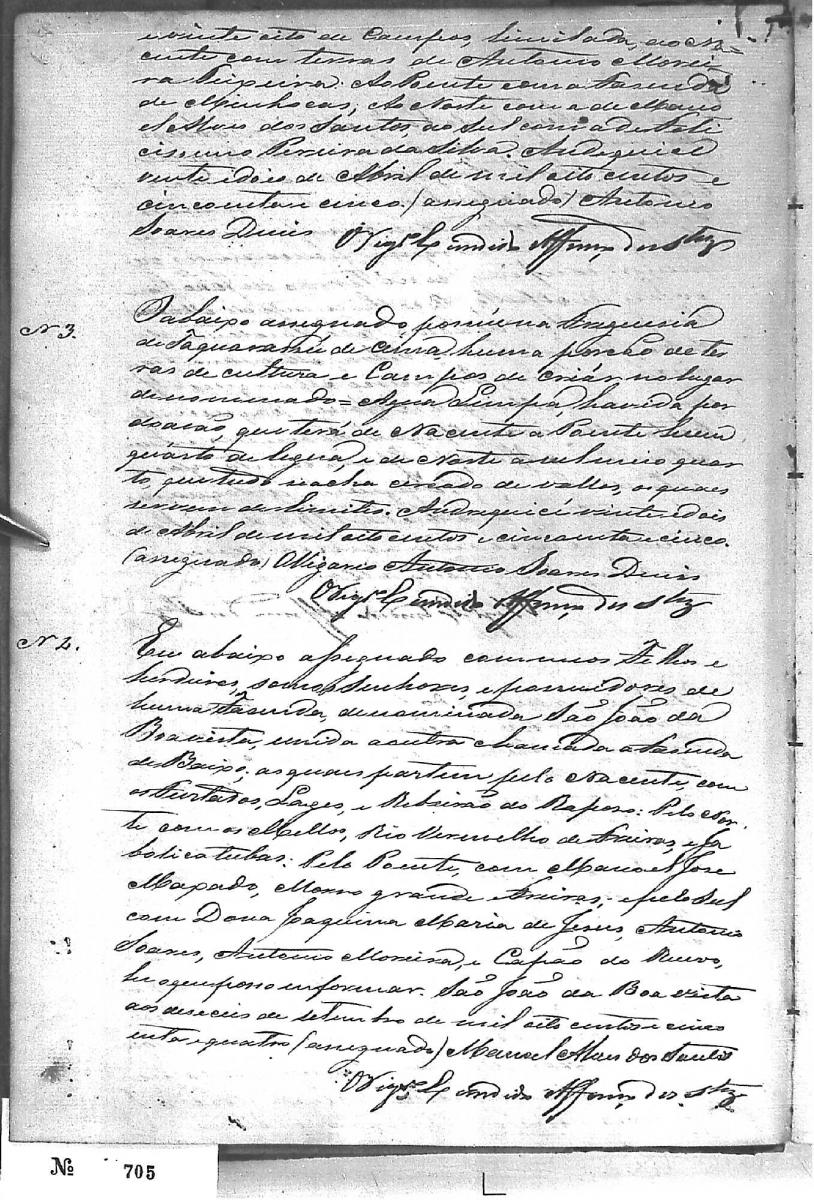 e vinte oito de Campos, limitada, ao Na=
cente com terras de Antonio Morei
ra Teixeira. Ao Poente com a Fasenda
de Minhocas; Ao Norte com a de Mano
el Alves dos Santos, ao Sul com a de Feli
cissimo Pereira da Silva. Andrequicé
vinte e dois de Abril de mil oito centos e
cincoenta e cinco. (assignado) Antonio
Soares Diniz O Vigrº Candido Affonso dos Stos
N 3.
O abaixo assignado possúe na Freguesia
de Taquarassú de cima huma porção de ter
ras de cultura e Campos de criár no lugar
denominado = Agoa Limpa, havida por
doacão, que terá de Nacente a Poente hum
quárto de legua, e de Norte a sul meio quar
to, que tudo se acha cercado de vallos, os quaes
servem de limites. Andrequicé vinte e dois
de Abril de mil oito centos e cincoenta e cinco.
(assignado) Antonio Soares Diniz
O Vigrº Candido Affonso dos Stos
N 4.
Eu abaixo assignado com meos Filhos e
herdeiros, somos Senhores, e possuidores de
huma Fasenda, denominada São João da
Boavista, unida a outra chamada a Fasenda
de Baixo; as quaes partem pelo Nacente, com
os Furtados, Lages, e Ribeirão do Raposo: Pelo Nor
te com os Mellos, Rio Vermelho de Freiras, e Ja
boticatubas: Pelo Poente, com Manoel José
Maxado, Morro grande e Freiras; e pelo Sul
com Dona Joaquina Maria de Jesus, Antonio
Soares, Antonio Moreira, e Capão do
he o que posso informar. São João da Boa vista
aos deseceis de setembro de mil oito centos e cinco
enta e quatro (assignado) Manoel Alves dos Santos
O Vigrº Candido Affonso dos Stos
Nº 705